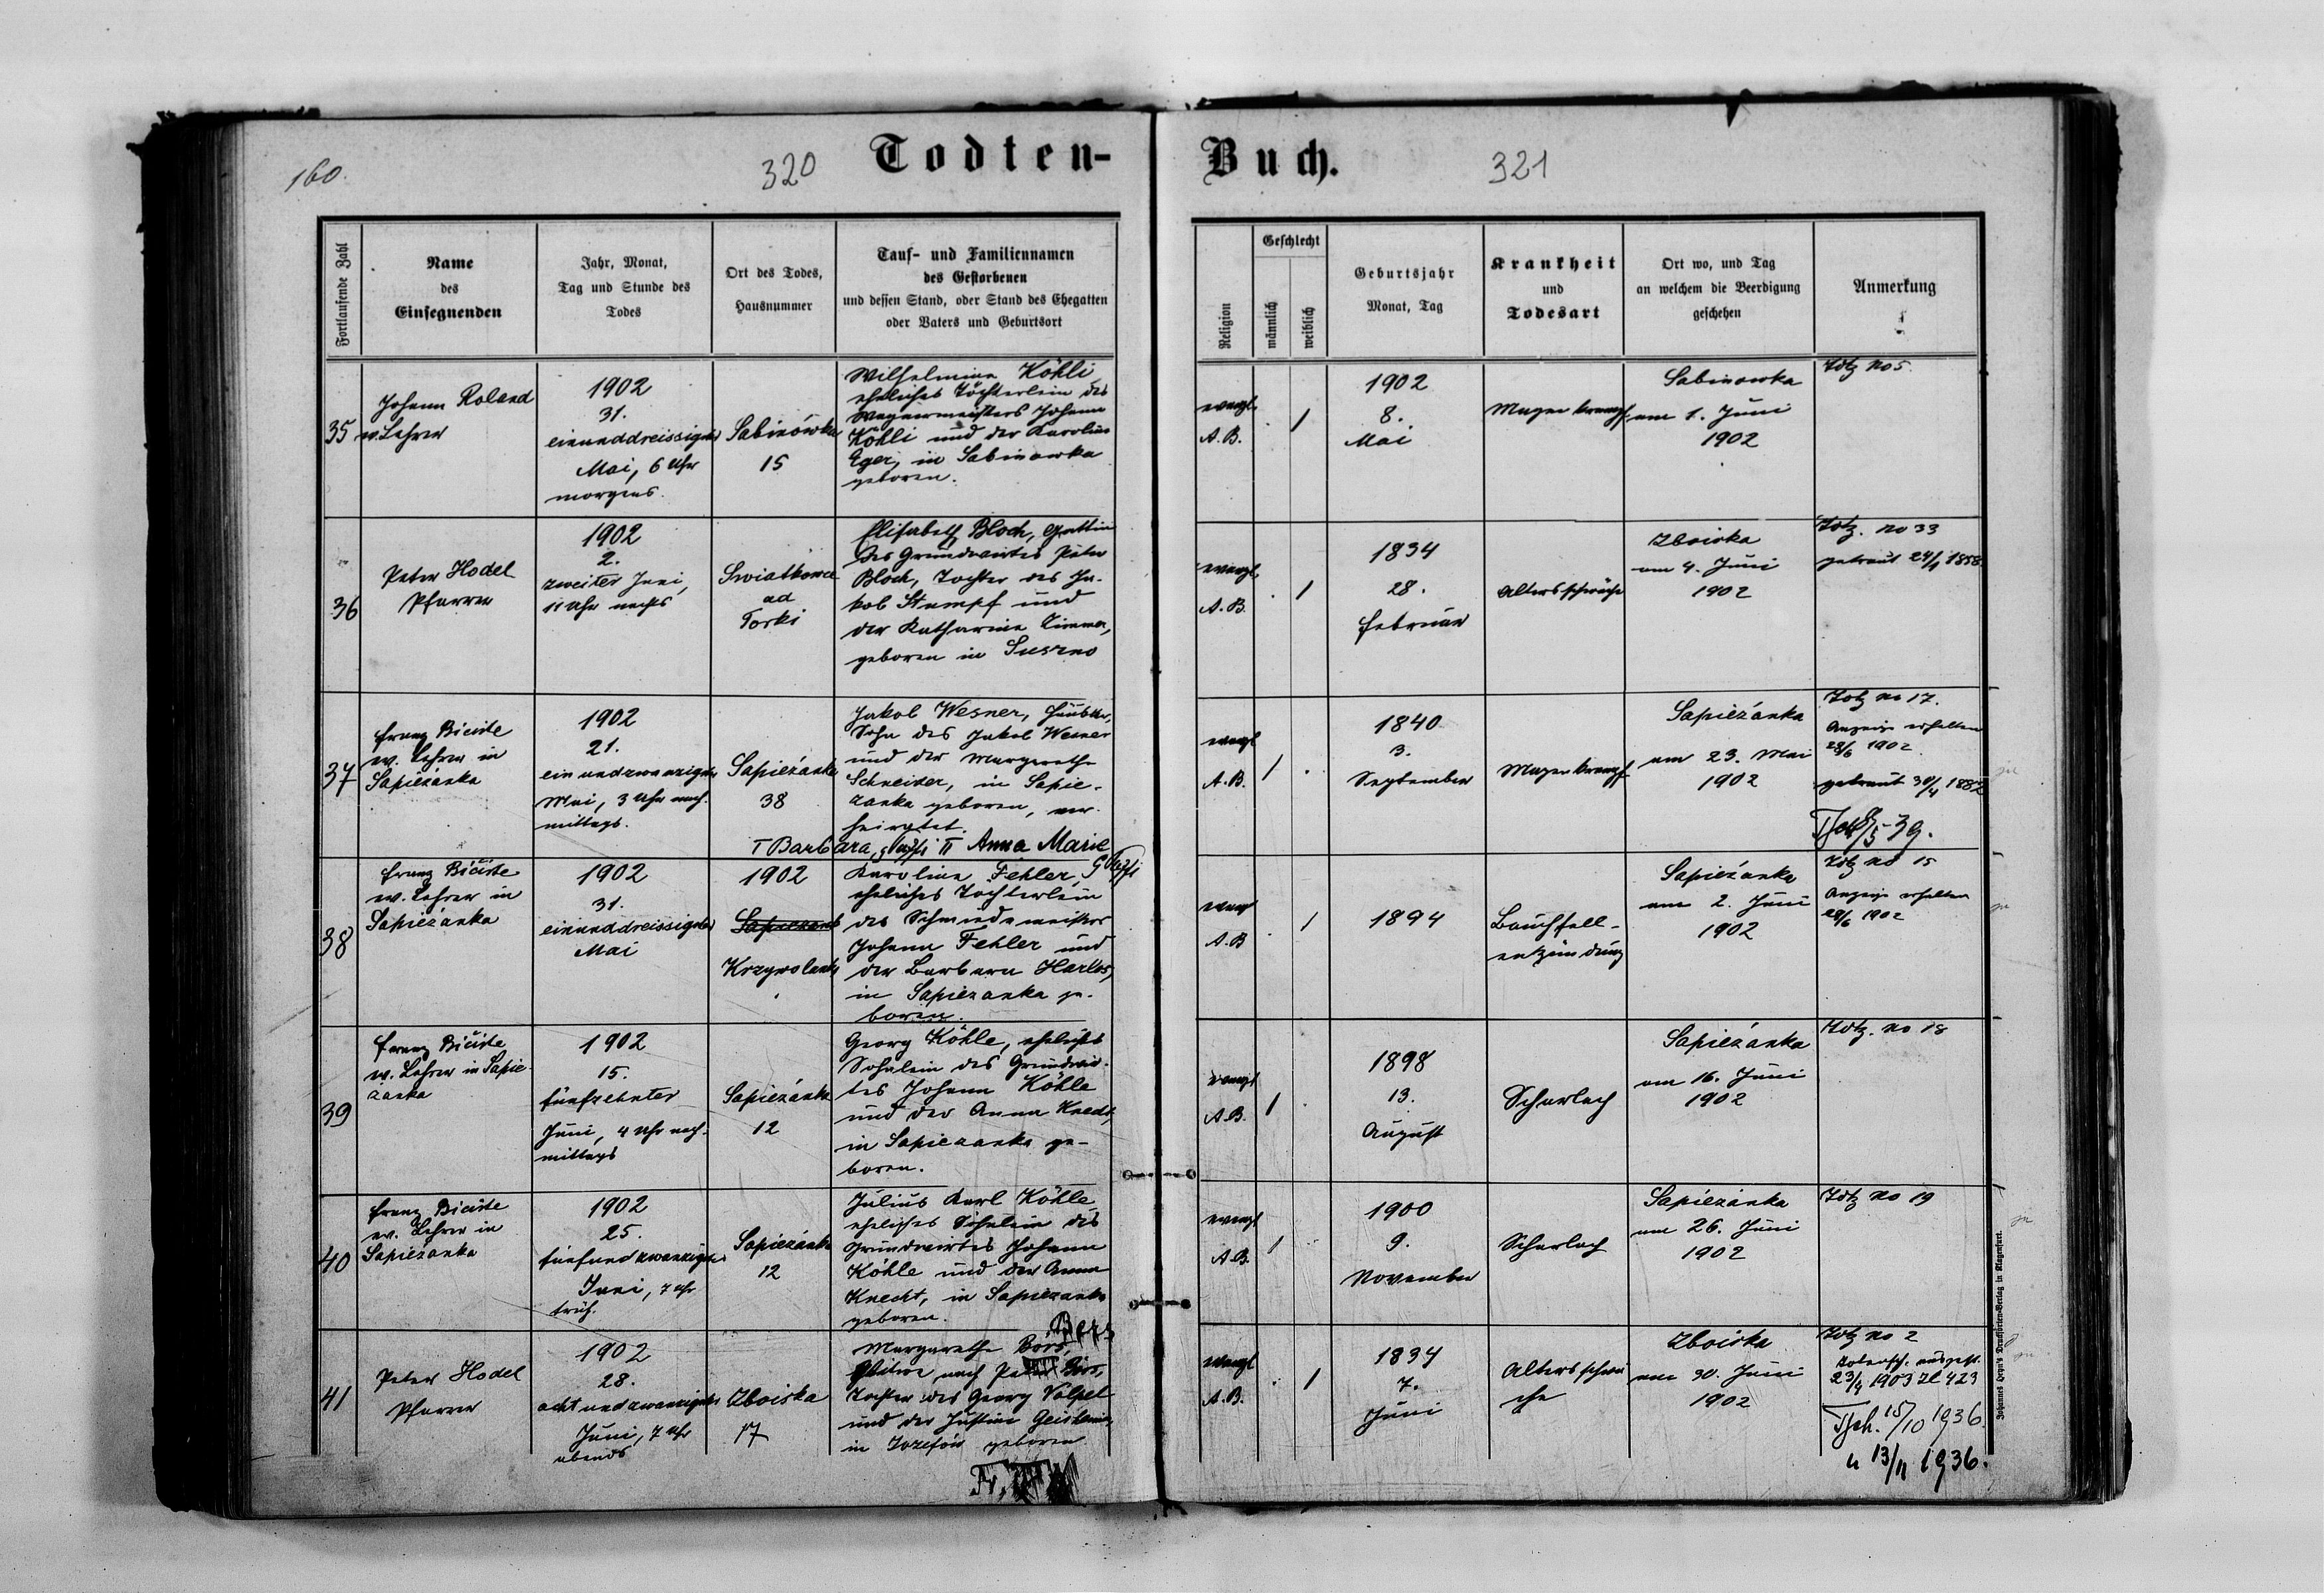 160.
320
Todten-
Buch.
321
Fortlaufende Zahl
Name
des
Einsegnenden
Jahr, Monat,
Tag und Stunde des
Todes
Ort des Todes,
Hausnummer
Tauf- und Familiennamen
des Gestorbenen
und dessen Stand, oder Stand des Ehegatten
oder Vaters und Geburtsort
Religion
Geschlecht
männlich
weiblich
Geburtsjahr
Monat, Tag
Krankheit
und
Todesart
Ort wo, und Tag
an welchem die Beerdigung
geschehen
Anmerkung
35
Johann Roland
ev. Lehrer
1902
31.
einunddreissigster
Mai, 6 Uhr
morgens.
Sabinówka
15
Wilhelmine Köhli
eheliches Töchterlein des
Wagnermeisters Johann
Köhli und der Karoline
Eger, in Sabinowka
geboren.
evangl.
A. B.
1
1902
8.
Mai
Magenkrampf
Sabinowka
am 1. Juni
1902
Totz No 5
36
Peter Hodel
Pfarrer
1902
2.
zweiter Juni,
11 Uhr nachts
Swiatkowa
ad
Torki
Elisabeth Bloch, Gattin
des Grundwirtes Peter
Bloch, Tochter des Ja-
kob Stumpf und
der Katharine Zimmer,
geboren in Suszno
evangl.
A. B.
1
1834
28.
Februar
Altersschwäche
Zboiska
am 4. Juni
1902
Totz. no 33
getraut 24/1 1858.
37
Franz Biciste
ev. Lehrer in
Sapieżanka
1902
21.
einundzwanzigster
Mai, 3 Uhr nach-
mittags.
Sapieżanka
38
Jakob Wesner,
Sohn des Jakob Wesner
und der Margarethe
Schneider, in Sapie-
zanka geboren, ver-
heiratet.
I Barbara, II Anna Marie
evangl
A. B.
1
1840
3.
September
Magenkrampf
Sapieżanka
am 23. Mai
1902
Totz no 17.
Anzeige erhalten
28/6 1902.
getraut 30/4 1882
38
Franz Biciste
ev. Lehrer in
Sapieżanka
1902
31.
einunddreissigster
Mai
1902
Krzywolanka
Karoline Fehler,
eheliches Tochterlein
des Schmiedemeisters
Johann Fehler und
der Barbara Harlos,
in Sapiezanka ge-
boren.
evang
A. B
1
1894
Bauchfell-
entzündung
Sapieżanka
am 2. Juni
1902
Totz no 15
Anzeige erhalten
28/6 1902
39
Franz Biciste
ev. Lehrer in Sapie-
zanka
1902
15.
fünfzehnter
Juni, 4 Uhr nach-
mittags
Sapieżanka
12
Georg Köhle, eheliches
Sohnlein des Grundwir-
tes Johann Köhle
und der Anna Knecht,
in Sapiezanka ge-
boren.
evangl
A. B.
1
1898
13.
August
Scharlach
Sapieżanka
am 16. Juni
1902
Totz. no 18
40
Franz Biciste
ev. Lehrer in
Sapieżanka
1902
25.
fünfundzwanzigster
Juni, 7 Uhr
früh.
Sapieżanka
12
Julius Karl Köhle
eheliches Söhnlein des
Grundwirtes Johann
Köhle und der Anna
Knecht, in Sapiezanka
geboren.
evangl
A. B.
1
1900
9.
November
Scharlach
Sapieżanka
am 26. Juni
1902
Totz no 19
41
Peter Hodel
Pfarrer
1902
28.
achtundzwanzigster
Juni, 7 Uhr
abends
Zboiska
17
Margarethe Bors,
Witwe nach Peter Bors,
Tochter des Georg Völpel
und der Justine
in Józefów geboren
evangl
A. B.
1
1834
7.
Juni
Altersschwä-
che
Zboiska
am 30. Juni
1902
Totz no 2
Totensch. ausgest.
23/4 1903 Zl 423
Tsch. 15/10 1936.
u 13/11 1936.
Johannes Heyn's Drucksorten-Verlag in Klagenfurt.